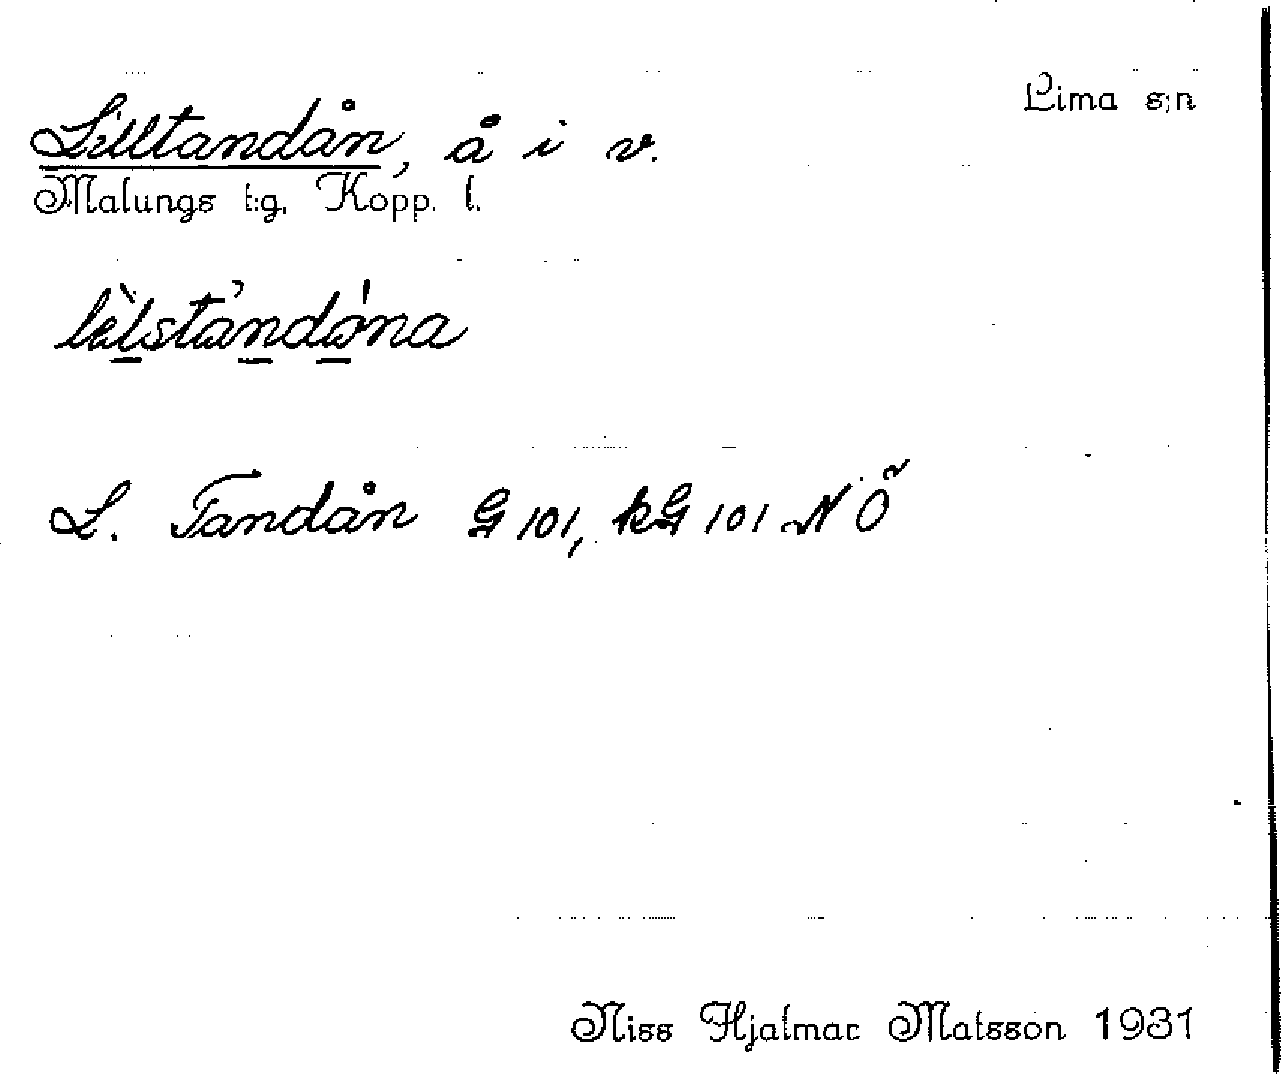 Lima s:n
Lilltandån, å i v.
Malungs t:g. Kopp. l.
L. Tandån G 101, kG 101 NÖ
Niss Hjalmar Matsson 1931